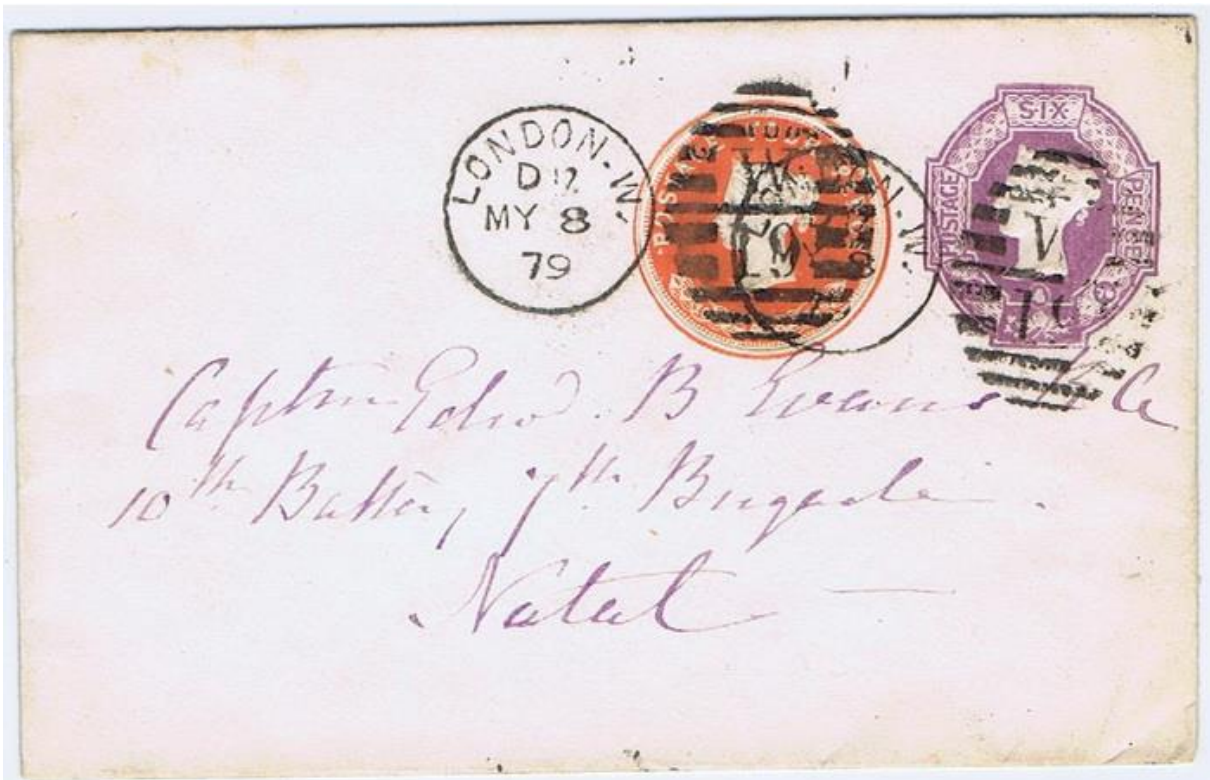 LONDON.W.
D 12
MY 8
79
POSTAGE FOUR PENCE
W
19
SIX
POSTAGE
PENCE
W
19
Captn Edwd. B Evans RA
10th Battery 7th Brigade.
Natal